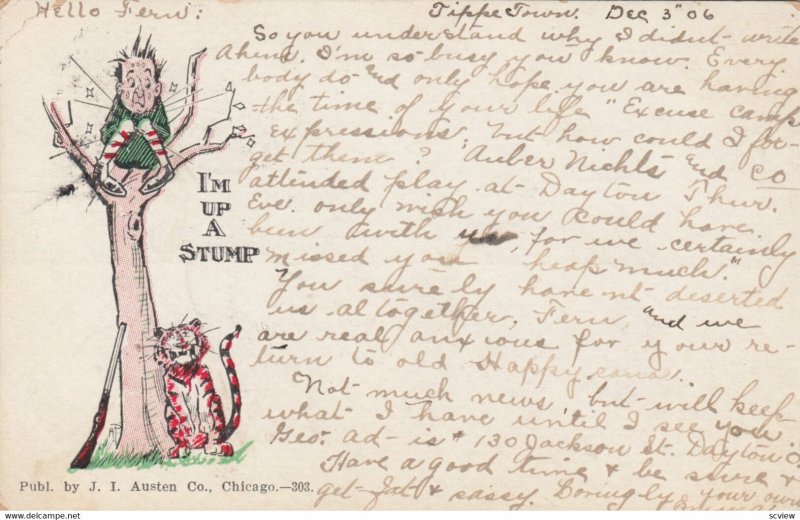 Hello Fern:
Tippe Town. Dec 3" 06
So you understand why I didn't write
I'm so busy you know. Every
body do and only hope you are having
the time of your life "Excuse camp
Expressions, but how could I for-
get them? Auber Nichts and Co
attended play at Dayton Thur.
Eve. only wish you could have
been with us, for we certainly
missed you heap much."
You surely have n't deserted
us altogether, Fern and we
are real anxious for your re-
turn to old Happy
Not much news, but will keep
what I have until I see you.
Geo. ad- is # 130 Jackson St. Dayton O
Have a good time & be sure &
get fat & sassy. Lovingly your own
I'M
UP
A
STUMP
Publ. by J. I. Austen Co., Chicago.—303.
scview